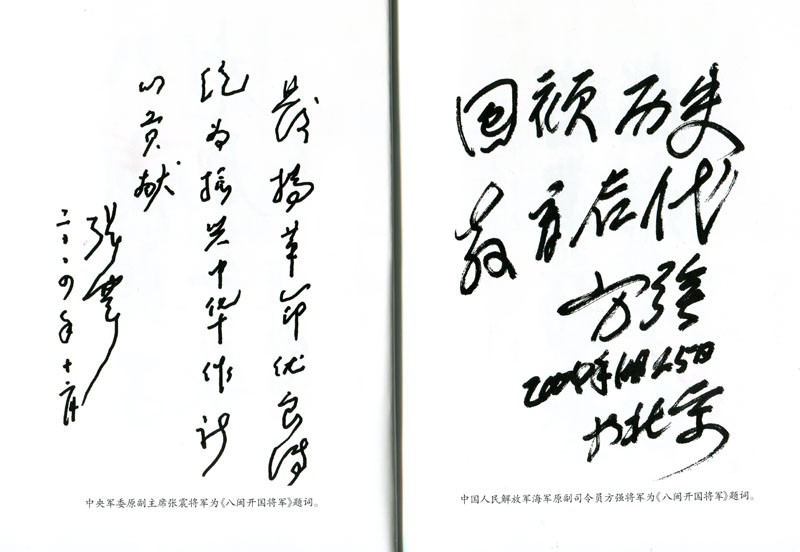 发扬革命优良传
统为振兴中华作新
的贡献
张震
二〇〇四年十二月
中央军委原副主席张震将军为《八闽开国将军》题词。
回顾历史
教育后代
方强
2004年 25日
于北京
中国人民解放军海军原副司令员方强将军为《八闽开国将军》题词。